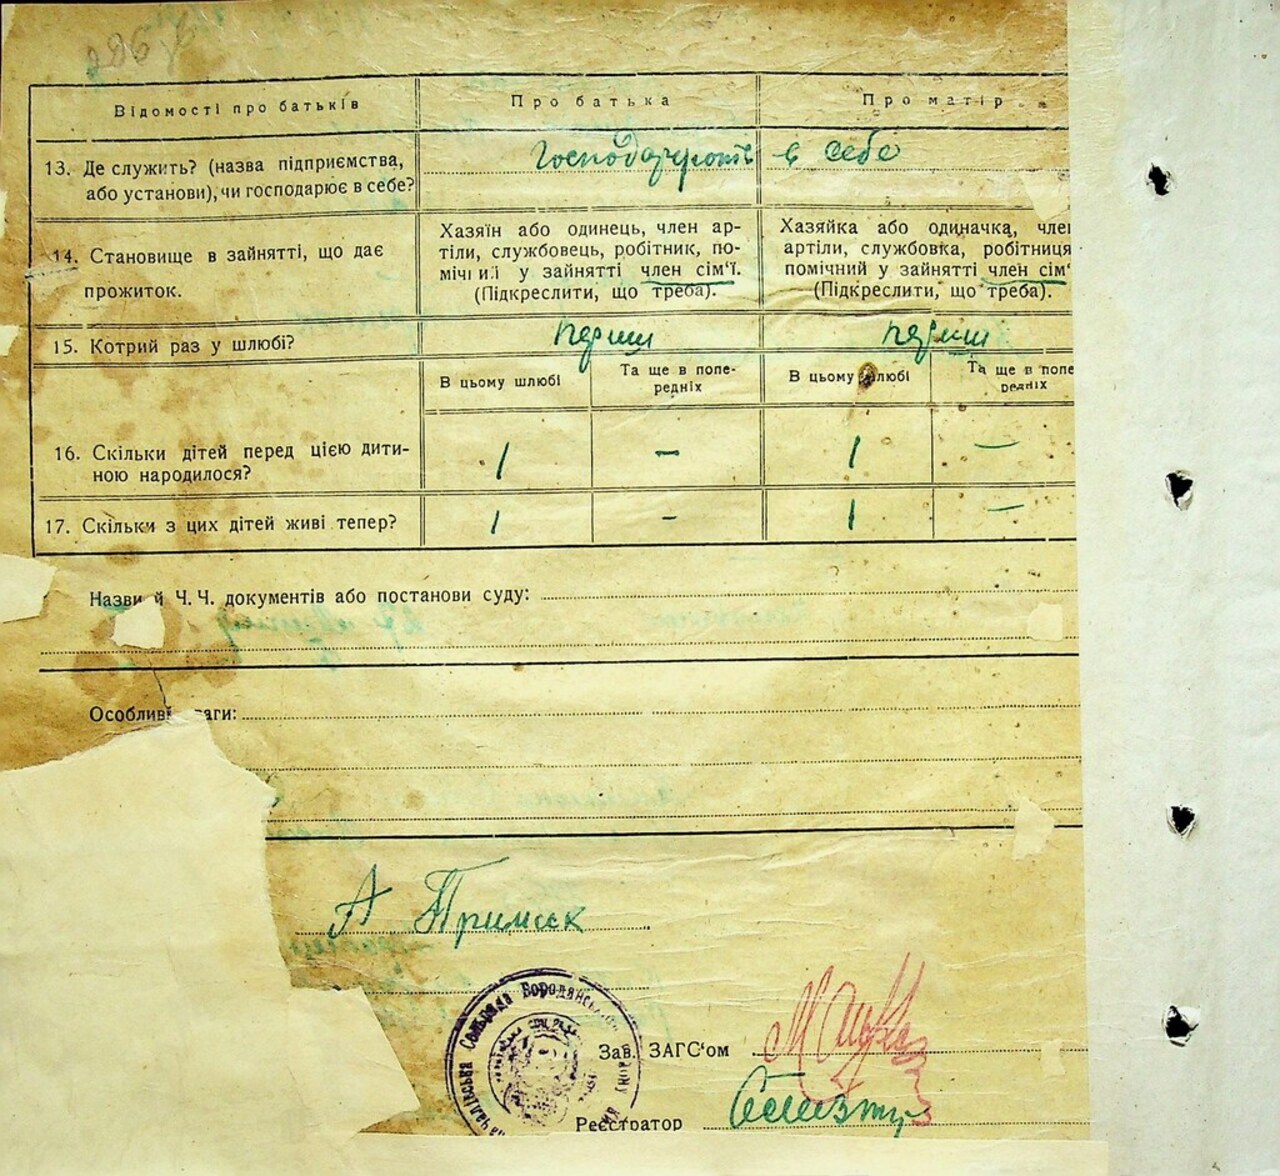 Відомості про батьків
Про батька
Про матір
13. Де служить? (назва підприємства,
або установи), чи господарює в себе?
в себе
14. Становище в зайнятті, що дає
прожиток.
Хазяїн або одинець, член ар-
тіли, службовець, робітник, по-
у зайнятті член сім'ї.
(Підкреслити, що треба).
Хазяйка або одиначка, член
артіли, службовка, робітниця
помічний у зайнятті член сім'
(Підкреслити, що треба).
15. Котрий раз у шлюбі?
перший
перший
В цьому шлюбі
Та ще в попе-
редніх
В цьому шлюбі
Та ще в попе
редніх
16. Скільки дітей перед цією дити-
ною народилося?
1 - 1 -
17. Скільки з цих дітей живі тепер?
1 - 1 -
Назви й Ч. Ч. документів або постанови суду:
Особливі ваги:
А Примак
Сельрада Бородянського
Зав. ЗАГС'ом
Реєстратор